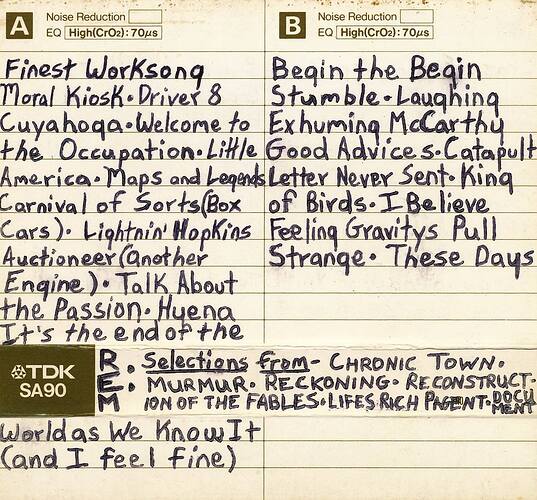 A Noise Reduction
EQ High(CrO2):70µs
Finest Worksong
Moral Kiosk • Driver 8
Cuyahoga • Welcome to
the Occupation • Little
America • Maps and Legends
Carnival of Sorts (Box
Cars) • Lightnin' Hopkins
Auctioneer (another
Engine) • Talk About
the Passion • Hyena
It's the end of the
B Noise Reduction
EQ High(CrO2):70µs
Begin the Begin
Stumble • Laughing
Exhuming McCarthy
Good Advices • Catapult
Letter Never Sent • King
of Birds • I Believe
Feeling Gravitys Pull
Strange • These Days
TDK
SA90
R. Selections from - CHRONIC TOWN •
E. MURMUR • RECKONING • RECONSTRUCT-
M ION OF THE FABLES • LIFES RICH PAGENT • DOCUMENT
World as We Know It
(and I feel fine)